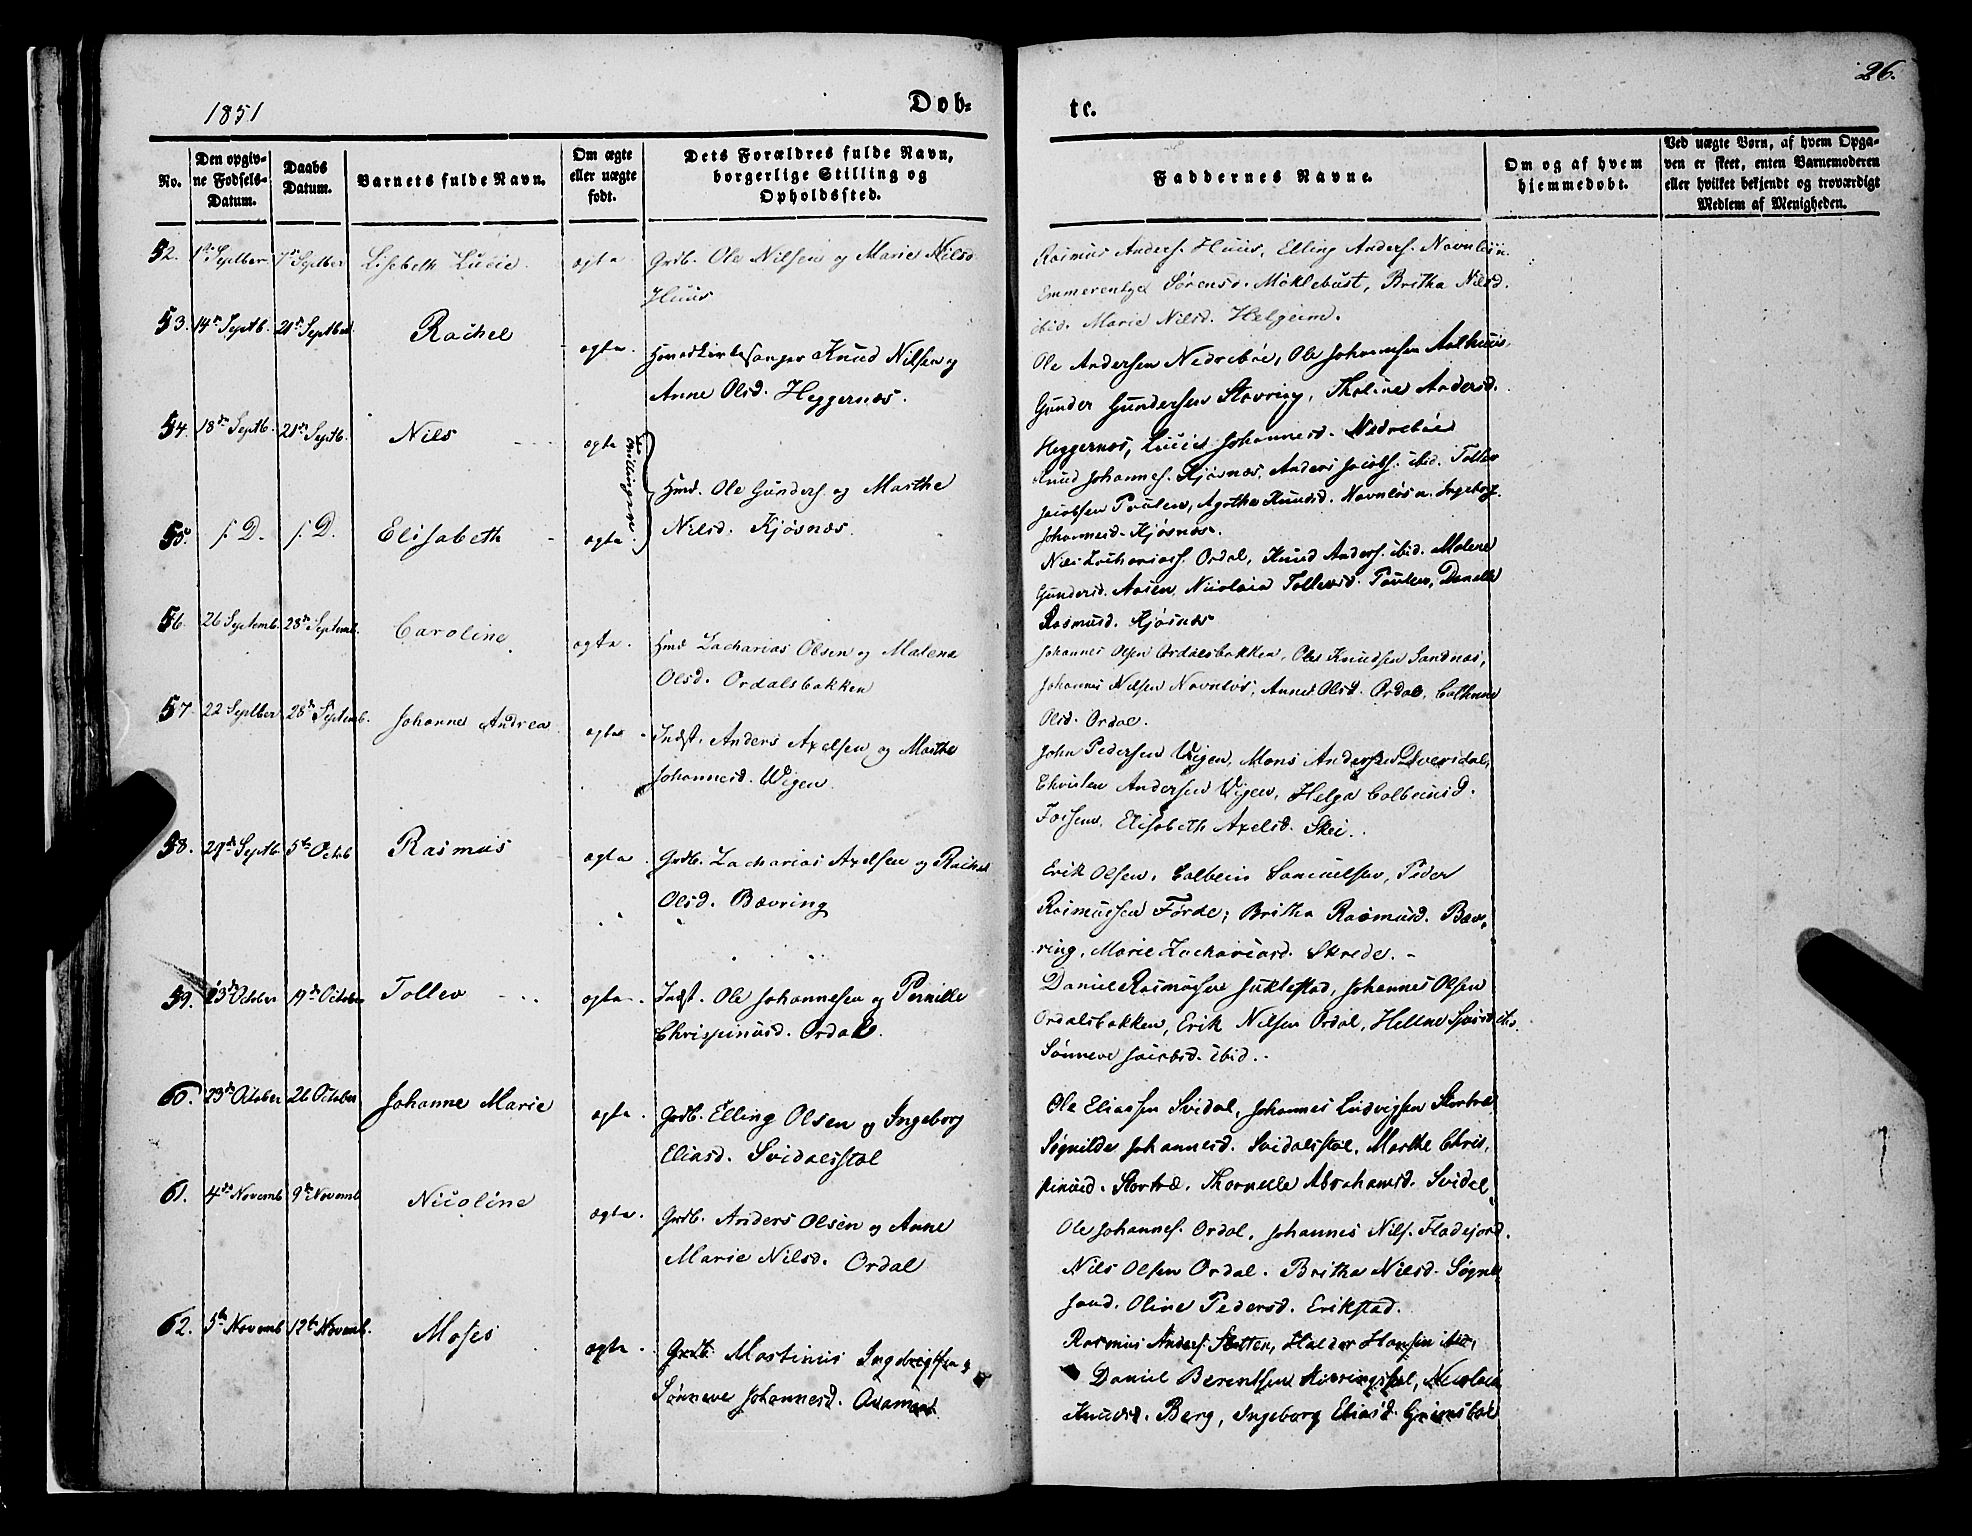 1851
Døb-
te.
26.
No.
Den opgiv-
ne Fødsels-
Datum.
Daabs
Datum.
Barnets fulde Navn.
Om ægte
eller uægte
født.
Dets Forældres fulde Navn,
borgerlige Stilling og
Opholdssted.
Faddernes Navne.
Om og af hvem
hjemmedøbt.
Ved uægte Børn, af hvem Opga-
ven er skeet, enten Barnemoderen
eller hvilket bekjendt og troværdigt
Medlem af Menigheden.
52. 1ste Septber 7de Septber Lisabeth Lucie. ægte. Grdb. Ole Nilsen og Marie Nilsd.
Huus
Rasmus Anders. Huus, Elling Anders. Navnløs
Emmerentze Sørensd. Møklebust, Britha Nilsd.
ibid. Marie Nilsd. Helgeim.
53. 14de Septb. 21de Septber Rachel ægte. Knud Nilsen og
Anne Olsd. Heggernæs.
Ole Andersen Nedrebøe, Ole Johannesen Aalhuus,
Gunder Gundersen Støvring, Thaline Andersd.
Heggernæs, Lucie Johannesd. Nedrebøe
54. 18de Septb. 21de Septb. Nils ægte Tvillinger
Hmd. Ole Gunders. og Marthe
Nilsd. Kjøsnæs.
Knud Johannes. Kjøsnæs, Anders Jacobs. ibid. Tollev
Jacobsen Paulen, Agatha Knudsd. Navnløs. Ingeborg
Johannesd. Kjøsnæs.
55. s. D. s. D. Elisabeth ægte.
Zachariass. Ordal, Knud Anders. ibid. Malene
Gundersd. Aasen, Nicolaia Tollevsd. Paulen, Danelle
Rasmusd. Kjøsnæs
56. 26 Septemb. 28de Septemb. Caroline. ægte. Hmd Zacharias Olsen og Malene
Olsd. Ordalsbakken
Johannes Olsen Ordalsbakken, Ole Knudsen Sandnæs,
Johannes Nilsen Navnløs, Anne Olsd. Ordal,
Olsd. Ordal.
57. 22 Septber 28de Septemb. Johanne Andrea ægte Indst. Anders Axelsen og Marthe
Johannesd. Wigen.
John Pedersen Wigen, Mons Andersen
Christen Andersen Wigen, Helga Colbeinsd.
Elisabeth Axelsd. Skei.
58. 29de Septb. 5te Octob Rasmus ægte. Grdb. Zacharias Axelsen og Rachel
Olsd. Bævring
Erik Olsen, Colbein Samuelsen, Peder
Rasmussen Førde, Britha Rasmusd. Bæv-
ring, Marie Zachariasd. Skrede.
59. 13de October 19de October Tollev ægte. Indst. Ole Johannesen og Pernille
Chrispinusd. Ordal.
Daniel Rasmusen Johannes Olsen
Ordalsbakken, Erik Nilsen Ordal,
Sønneve Jacobsd. ibid.
60. 23de October 26 October Johanne Marie ægte. Grdb. Elling Olsen og Ingeborg
Eliasd. Svidalsstøl
Ole Eliassen Svidal, Johannes Ludvigsen Stortræ
Søgnilde Johannesd. Svidalsstøl, Marthe Chris-
pinusd. Stortræ, Thornelle Abrahamsd. Svidal
61. 4de Novemb 9de Novemb Nicoline ægte. Grdb. Anders Olsen og Anne
Marie Nilsd. Ordal
Ole Johannes. Ordal, Johannes Nils. Fladejord.
Nils Olsen Ordal. Britha Nilsd. Søgne-
sand. Oline Pedersd. Erikstad.
62. 5te Novemb 12te Novemb. Moses ægte. Grdb. Martinus Ingebrigtsen og
Sønneve Johannesd.
Rasmus Anders. Slotten, Haldor Hansen ibid,
Daniel Berentsen Nicolaia
Knudsd. Berg, Ingeborg Eliasd.